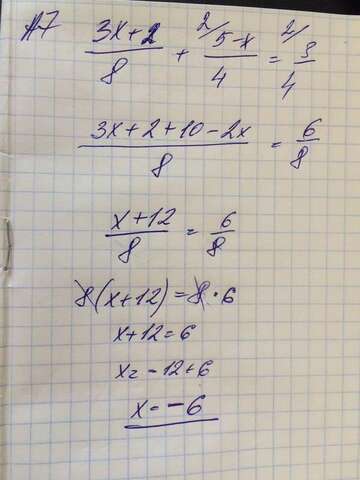 №7 (3x+2)/8 + 2/(5-x)/4 = 2/3/4
(3x+2+10-2x)/8 = 6/8
(x+12)/8 = 6/8
8(x+12)=8·6
x+12=6
x=-12+6
x=-6